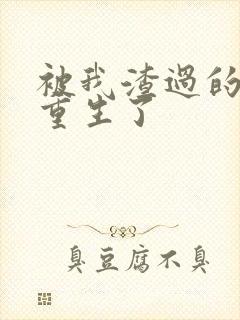 被我渣过的
重生了
臭豆腐不臭